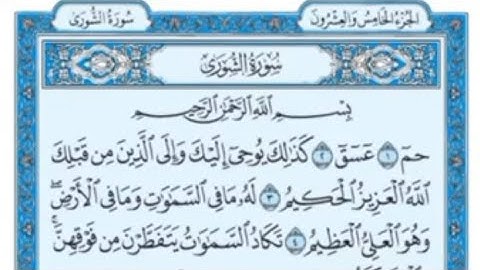 الجزء الخامس والعشرون
سورة الشورى
سورة الشورى
بِسْمِ اللَّهِ الرَّحْمَٰنِ الرَّحِيمِ
حمٓ ١ عٓسٓقٓ ٢ كَذَٰلِكَ يُوحِىٓ إِلَيْكَ وَإِلَى الَّذِينَ مِن قَبْلِكَ
اللَّهُ الْعَزِيزُ الْحَكِيمُ ٣ لَهُۥ مَا فِى السَّمَٰوَٰتِ وَمَا فِى الْأَرْضِۖ
وَهُوَ الْعَلِىُّ الْعَظِيمُ ٤ تَكَادُ السَّمَٰوَٰتُ يَتَفَطَّرْنَ مِن فَوْقِهِنَّۚ